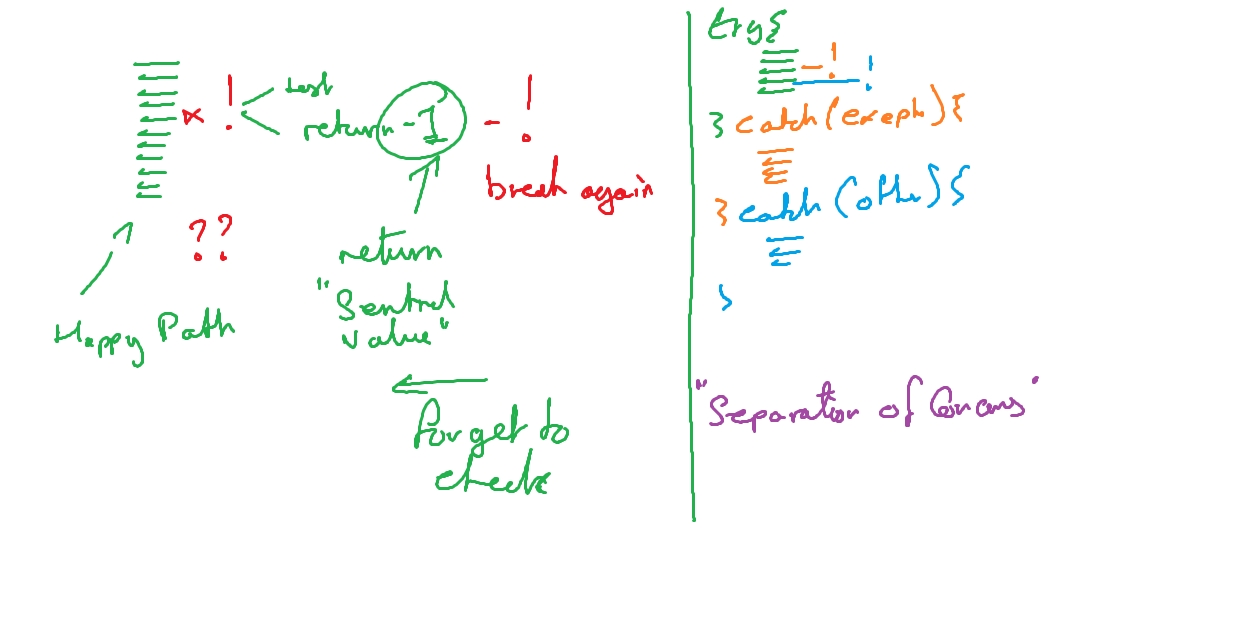 !
test
return -1
- !
break again
??
Happy Path
return
"Sentinel
Value"
forget to
check
try{
- !
!
} catch (exept) {
} catch (other) {
}
"Separation of Concerns"